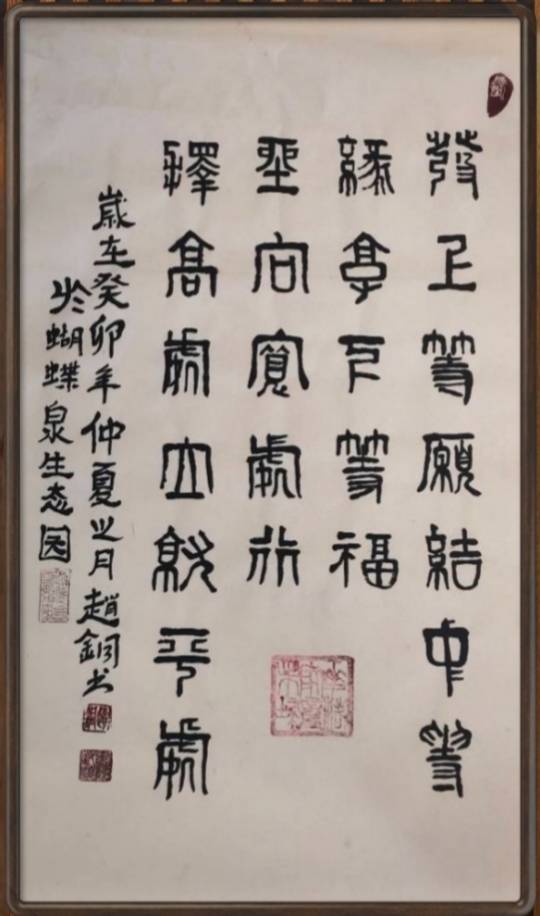 發上等願結中等
緣享下等福
擇高處立就平處
坐向寬處行
歲在癸卯年仲夏之月趙銅书
於蝴蝶泉生态园